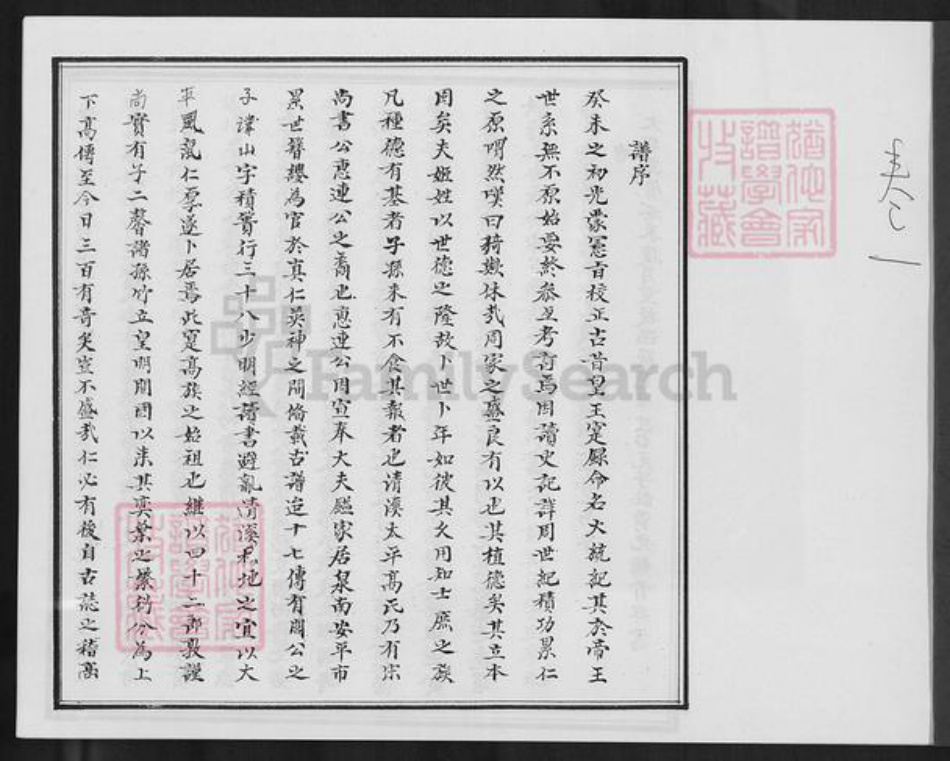 卷之一
猶他家譜學會收藏
譜序
癸未之初光蒙憲旨校正古昔皇王寔錄命名大統記其於帝王
世系無不原始要終參互考訂焉因讀史記詳周世紀積功累仁
之原喟然嘆曰猗歟休哉周家之盛良有以也其植德矣其立本
固矣夫姬姓以世德之隆故卜世卜年如彼其久用知士庶之族
凡種德有基者子孫未有不食其報者也清溪太平高氏乃有宋
尚書公惠連公之裔也惠連公因宣奉大夫繼家居泉南安平市
累世簪纓為官於真仁英神之間備載古譜迨十七傳有聞公之
子諱山字積實行三十八少明經讀書避亂清溪地之宜以大
平風氣仁厚遂卜居焉此寔高族之始祖也繼以四十二郎敦謹
尚實有子二馨諸孫竹立皇明開國以來其奕葉之繁衍分為上
下高傳至今日三百有奇矣豈不盛哉仁必有後自古誌之稽高
猶他家譜學會收藏
FamilySearch